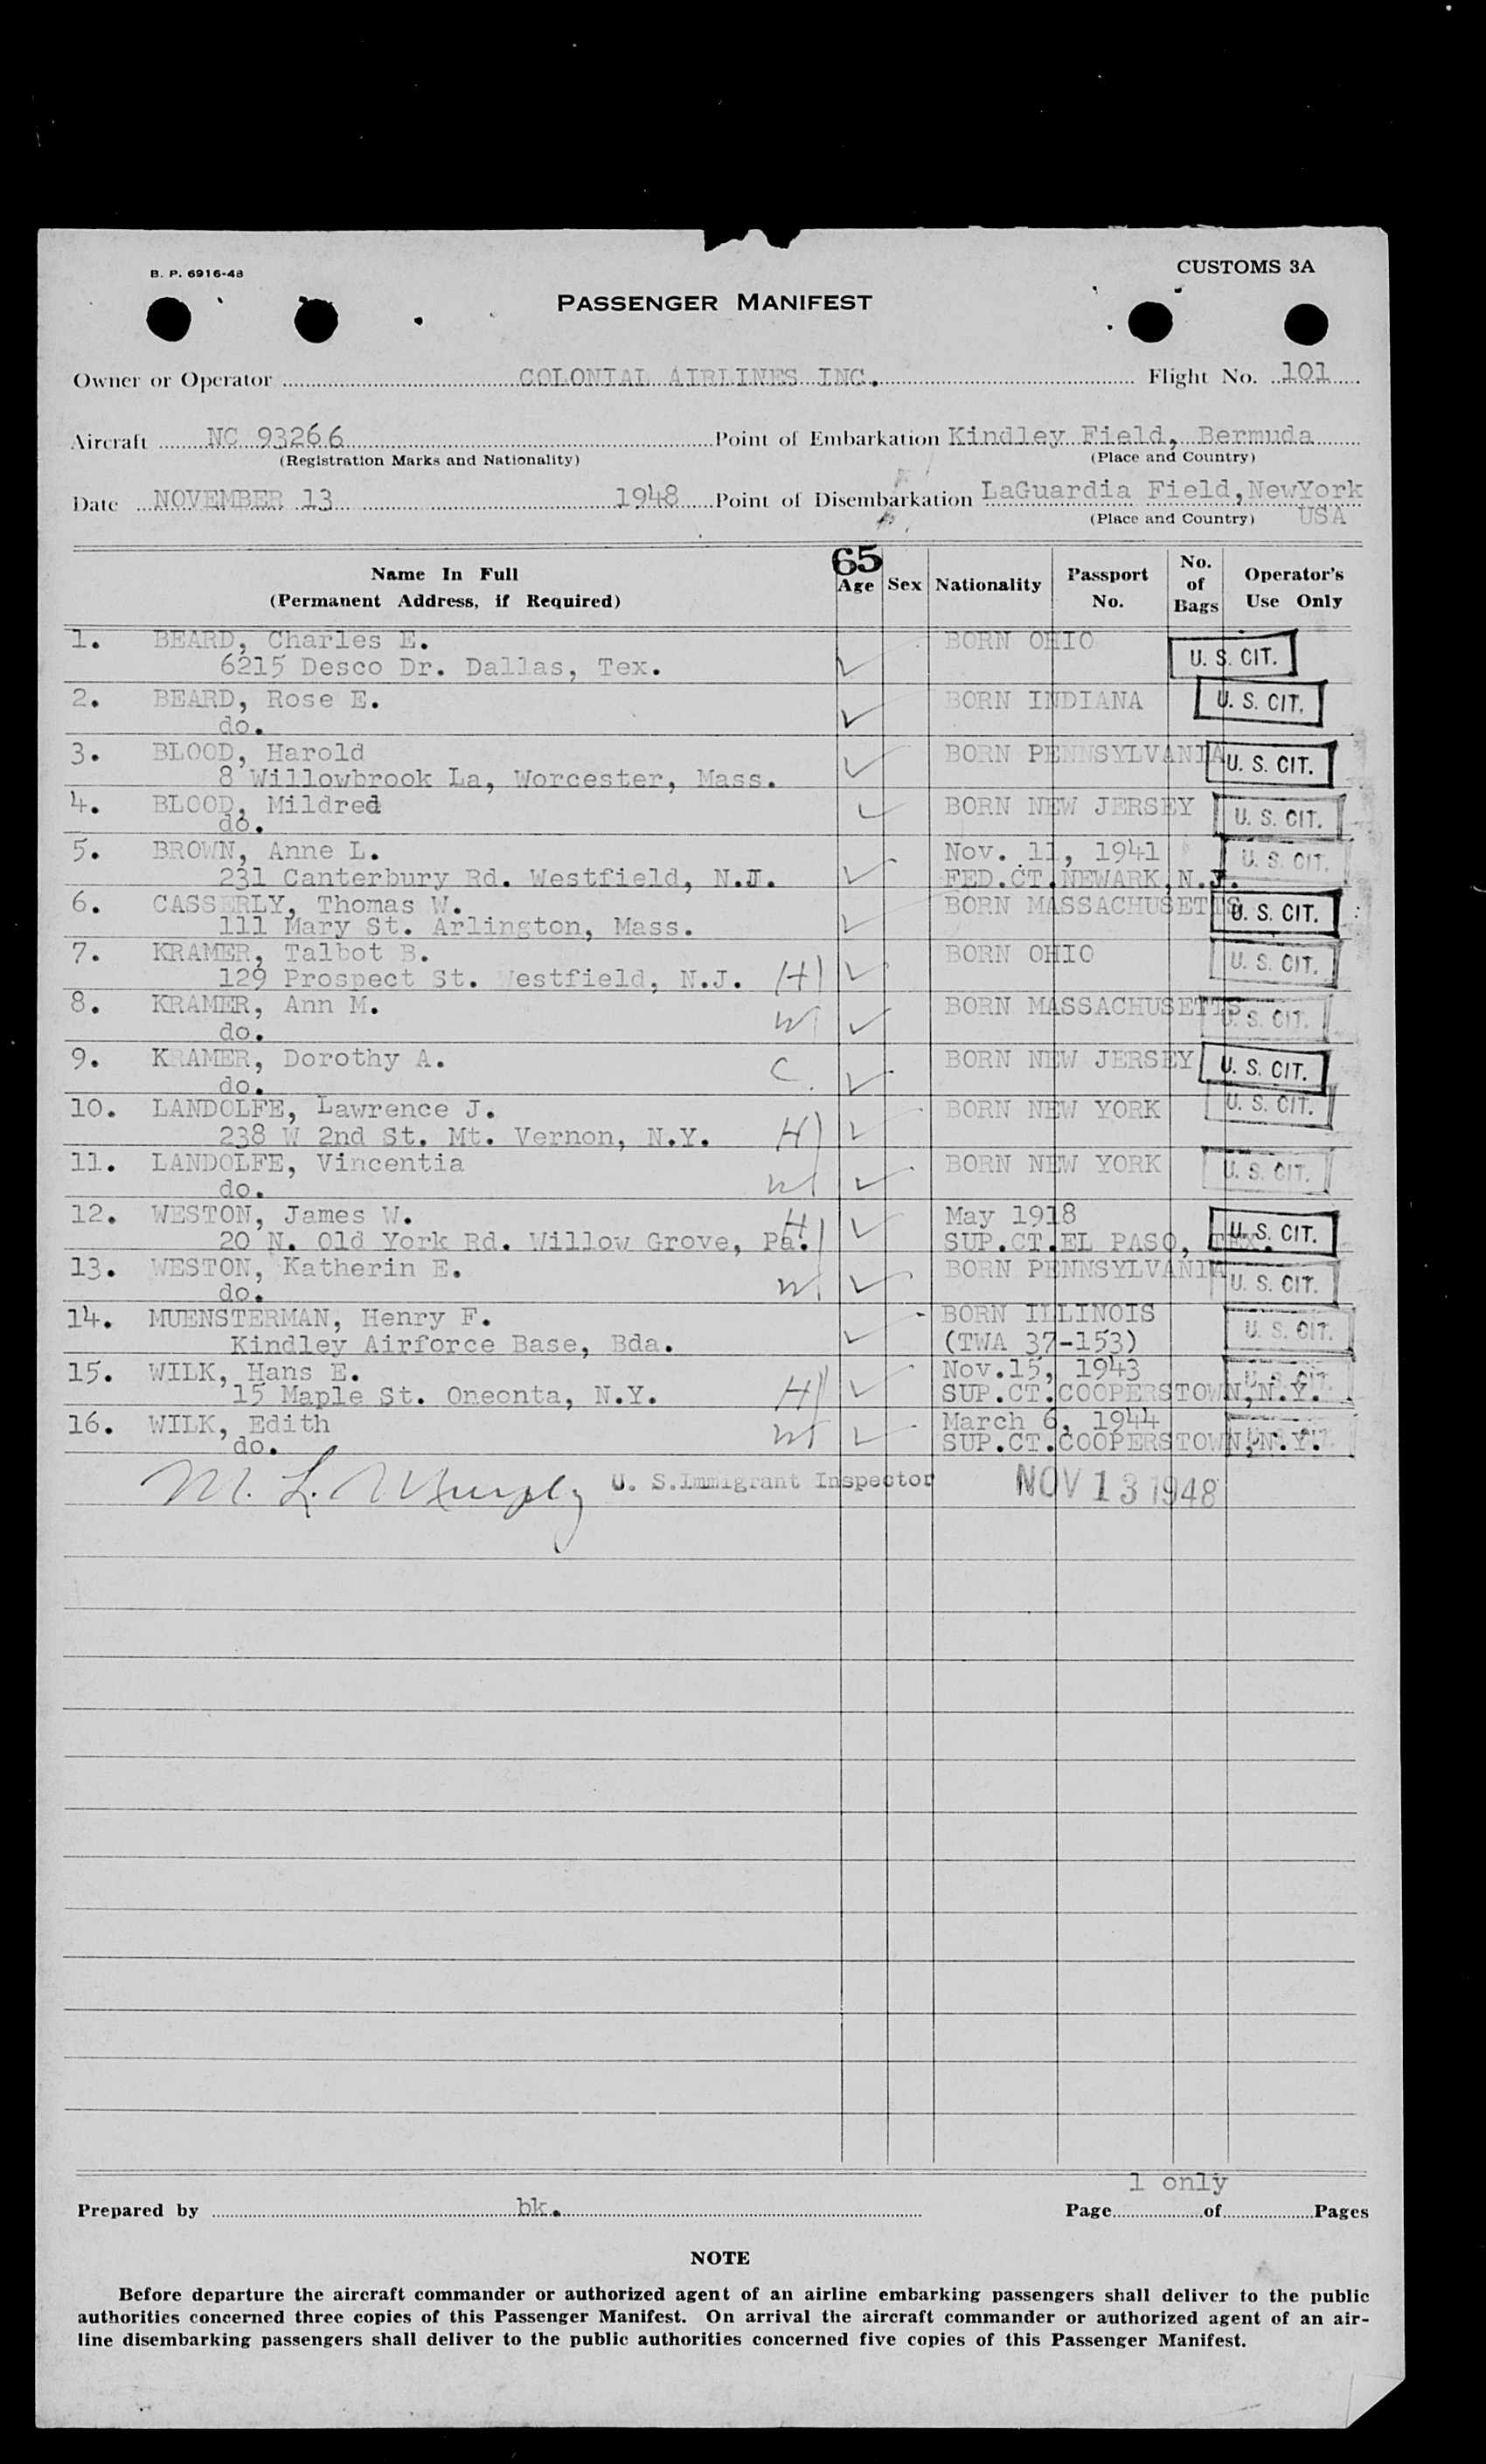 B. P. 6916-48
CUSTOMS 3A
PASSENGER MANIFEST
Owner or Operator COLONIAL AIRLINES INC. Flight No. 101
Aircraft NC 93266 Point of Embarkation Kindley Field, Bermuda
(Registration Marks and Nationality) (Place and Country)
Date NOVEMBER 13 1948 Point of Disembarkation LaGuardia Field, NewYork
(Place and Country) USA
65
Name In Full Age Sex Nationality Passport No. No. of Bags Operator's Use Only
(Permanent Address, if Required)
1. BEARD, Charles E. BORN OHIO U. S. CIT.
6215 Desco Dr. Dallas, Tex.
2. BEARD, Rose E. BORN INDIANA U. S. CIT.
do.
3. BLOOD, Harold BORN PENNSYLVANIA U. S. CIT.
8 Willowbrook La, Worcester, Mass.
4. BLOOD, Mildred BORN NEW JERSEY U. S. CIT.
do.
5. BROWN, Anne L. Nov. 11, 1941 U. S. CIT.
231 Canterbury Rd. Westfield, N.J. FED.CT.NEWARK,N.J.
6. CASSERLY, Thomas W. BORN MASSACHUSETTS U. S. CIT.
111 Mary St. Arlington, Mass.
7. KRAMER, Talbot B. BORN OHIO U. S. CIT.
129 Prospect St. Westfield, N.J. H
8. KRAMER, Ann M. BORN MASSACHUSETTS U. S. CIT.
do. W
9. KRAMER, Dorothy A. BORN NEW JERSEY U. S. CIT.
do. C.
10. LANDOLFE, Lawrence J. BORN NEW YORK U. S. CIT.
238 W 2nd St. Mt. Vernon, N.Y. H
11. LANDOLFE, Vincentia BORN NEW YORK U. S. CIT.
do. W
12. WESTON, James W. H May 1918 U. S. CIT.
20 N. Old York Rd. Willow Grove, Pa. SUP.CT.EL PASO, TEX.
13. WESTON, Katherin E. BORN PENNSYLVANIA U. S. CIT.
do. W
14. MUENSTERMAN, Henry F. BORN ILLINOIS U. S. CIT.
Kindley Airforce Base, Bda. (TWA 37-153)
15. WILK, Hans E. Nov.15, 1943 U. S. CIT.
15 Maple St. Oneonta, N.Y. H SUP.CT.COOPERSTOWN,N.Y.
16. WILK, Edith W March 6, 1944
do. SUP.CT.COOPERSTOWN,N.Y.
M. L. Murphy U. S. Immigrant Inspector NOV 13 1948
1 only
Prepared by bk. Page of Pages
NOTE
Before departure the aircraft commander or authorized agent of an airline embarking passengers shall deliver to the public
authorities concerned three copies of this Passenger Manifest. On arrival the aircraft commander or authorized agent of an air-
line disembarking passengers shall deliver to the public authorities concerned five copies of this Passenger Manifest.